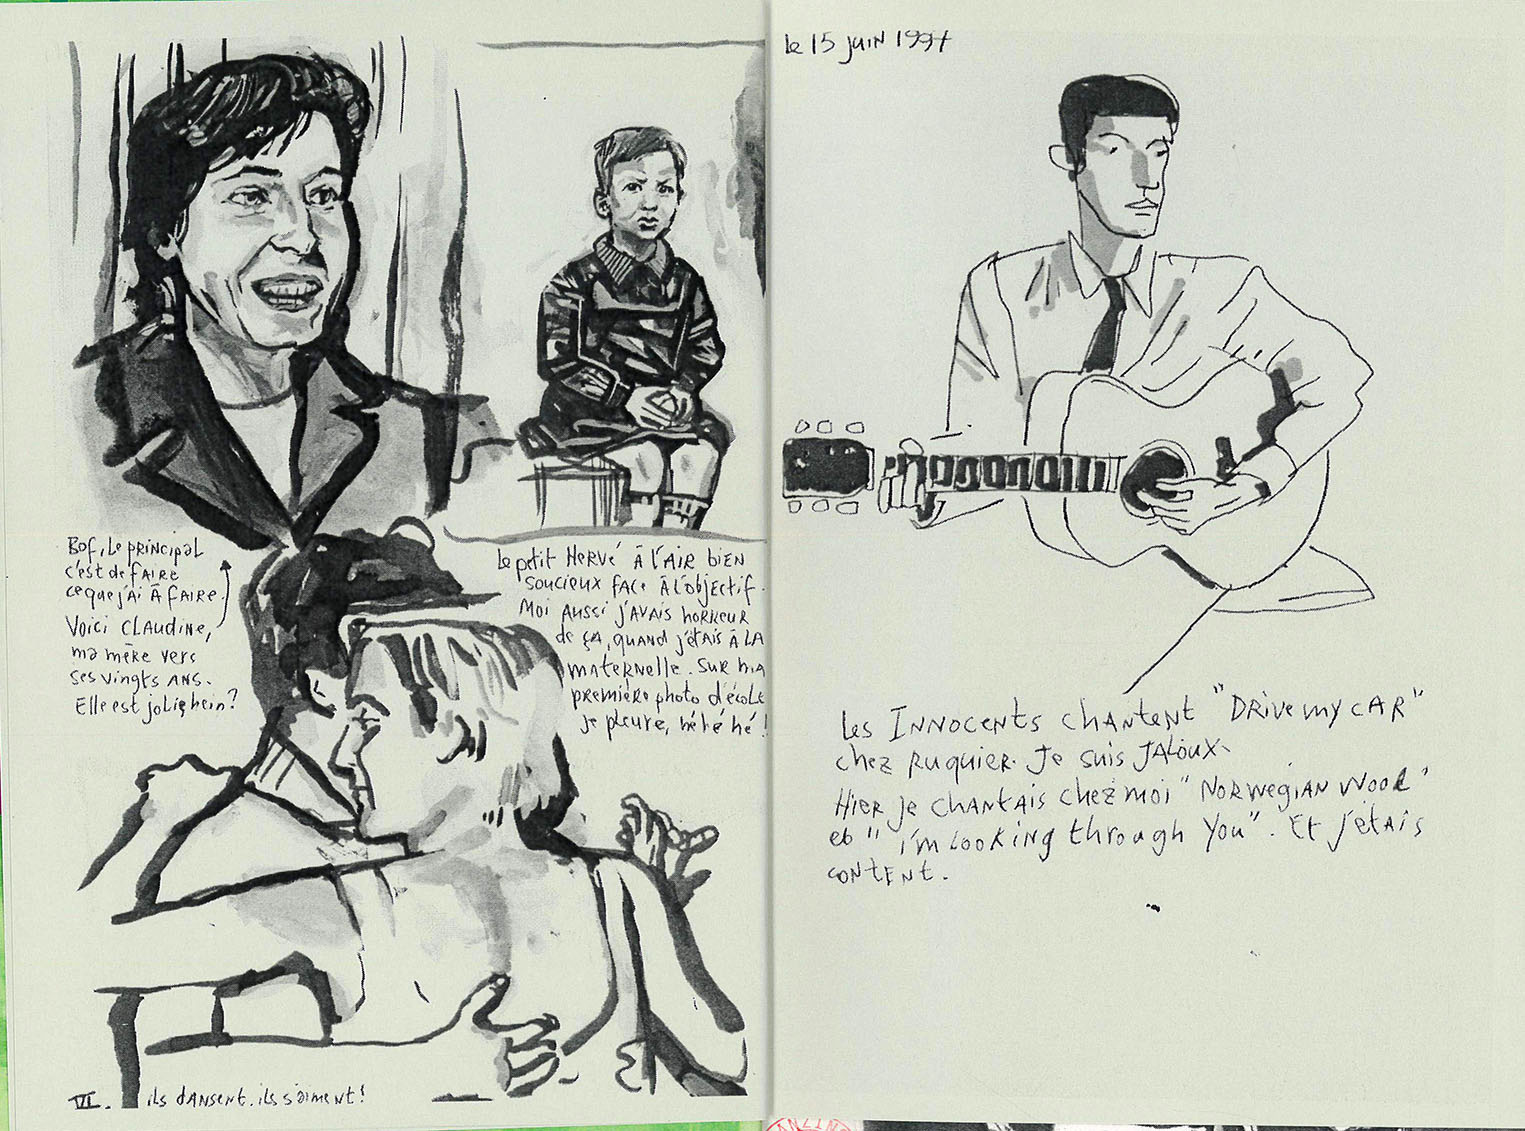 Bof, le principal
c'est de faire
ce que j'ai à faire.
Voici Claudine,
ma mère vers
ses vingts ans.
Elle est jolie, hein?
le petit Hervé à l'air bien
soucieux face à l'objectif.
Moi aussi j'avais horreur
de ça, quand j'étais à la
maternelle. Sur ma
première photo d'école
je pleure, hé hé hé!
VI. ils dansent, ils s'aiment!
le 15 juin 1997
Les Innocents chantent "Drive my car"
chez Ruquier. Je suis jaloux.
Hier je chantais chez moi "Norwegian Wood"
et "i'm looking through you". Et j'étais
content.